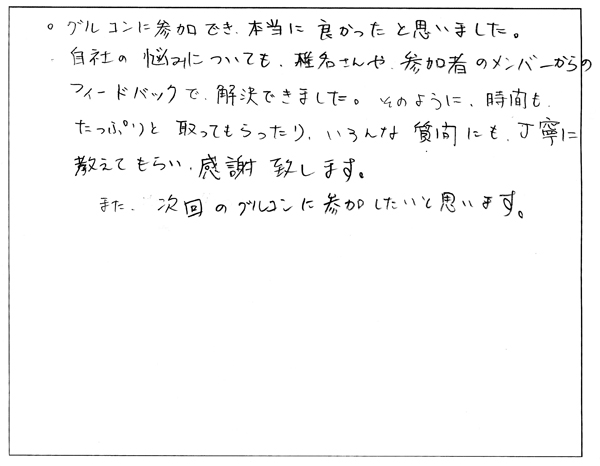 ○ グルコンに参加でき、本当に良かったと思いました。
自社の悩みについても、椎名さんや、参加者のメンバーからの
フィードバックで、解決できました。そのように、時間も、
たっぷりと取ってもらったり、いろんな質問にも、丁寧に
教えてもらい、感謝致します。
また、次回のグルコンに参加したいと思います。